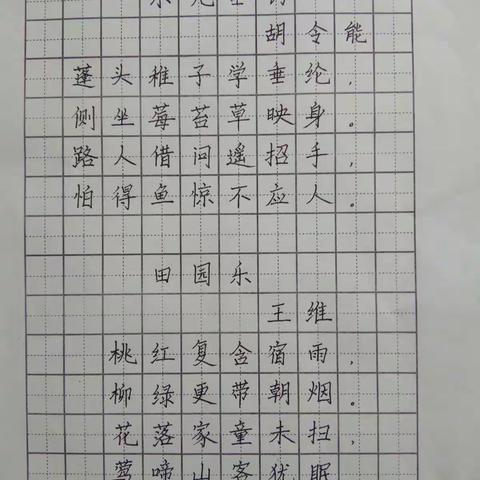 胡令能
蓬头稚子学垂纶，
侧坐莓苔草映身。
路人借问遥招手，
怕得鱼惊不应人。
田园乐
王维
桃红复含宿雨，
柳绿更带朝烟。
花落家童未扫，
莺啼山客犹眠